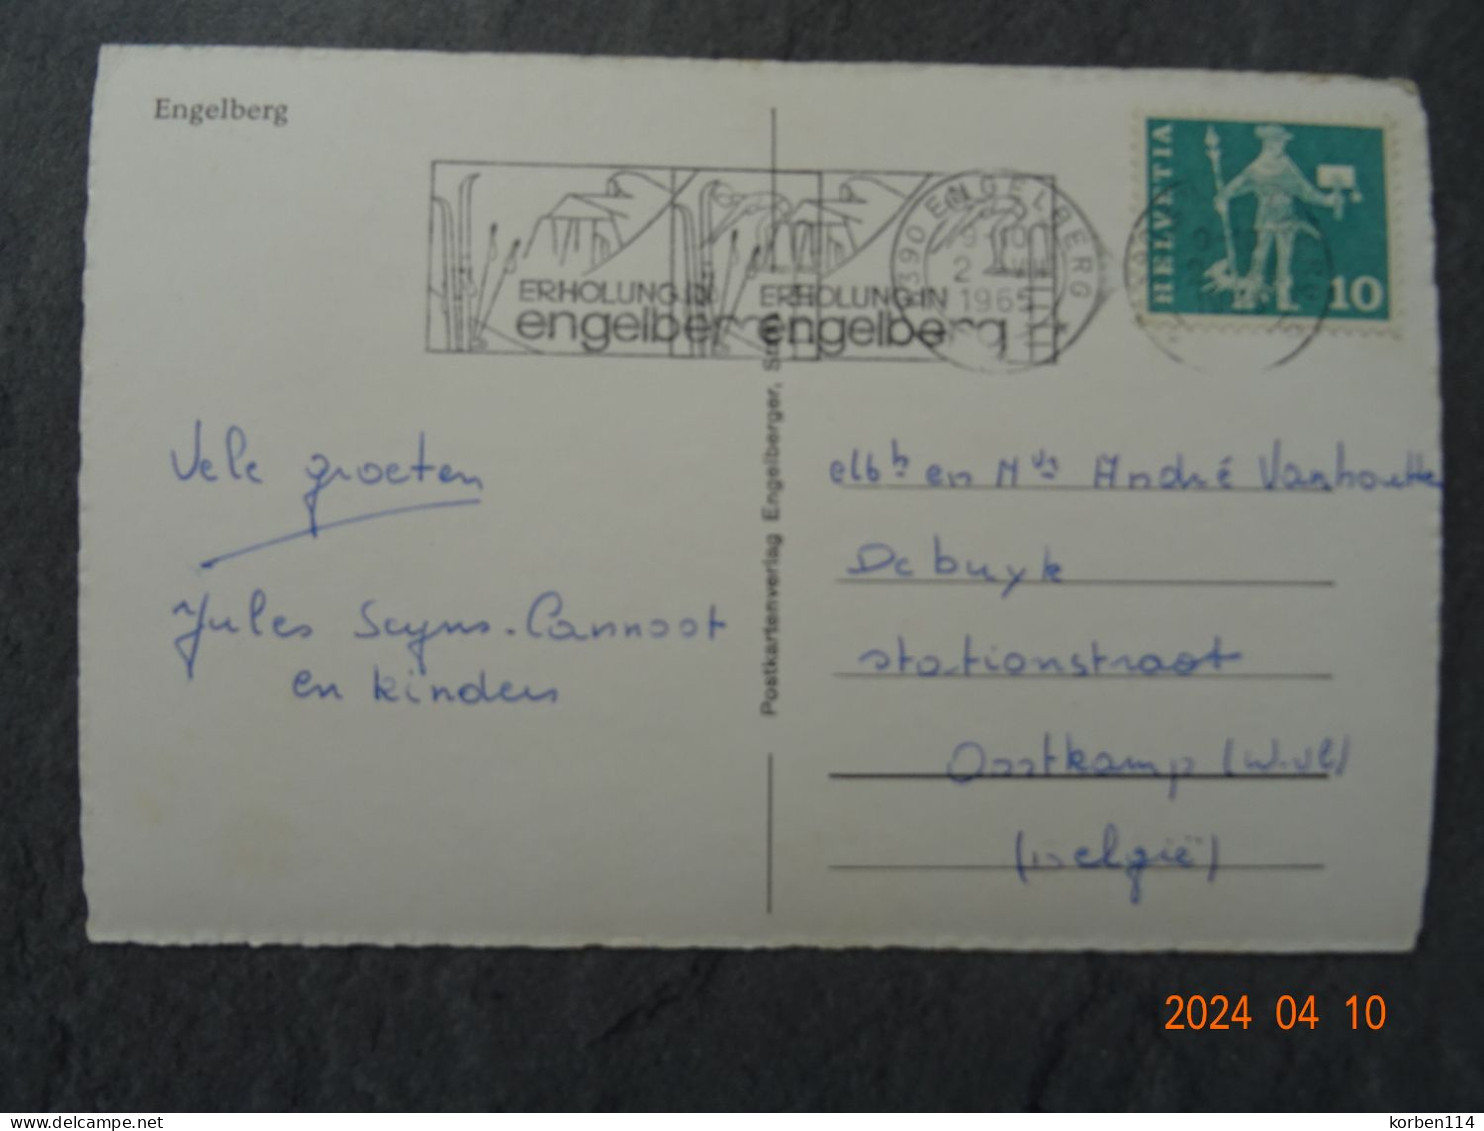 Engelberg
ERHOLUNG IN ERHOLUNG IN
engelberg engelberg
6390 ENGELBERG
1965
HELVETIA
10
Postkartenverlag Engelberger,
Vele groeten
Jules Seyns-Cannoot
en kinders
en Mvr André Vanhoutte
De buyk
stationstraat
Oostkamp (W.vl)
(België)
2024 04 10
korben114